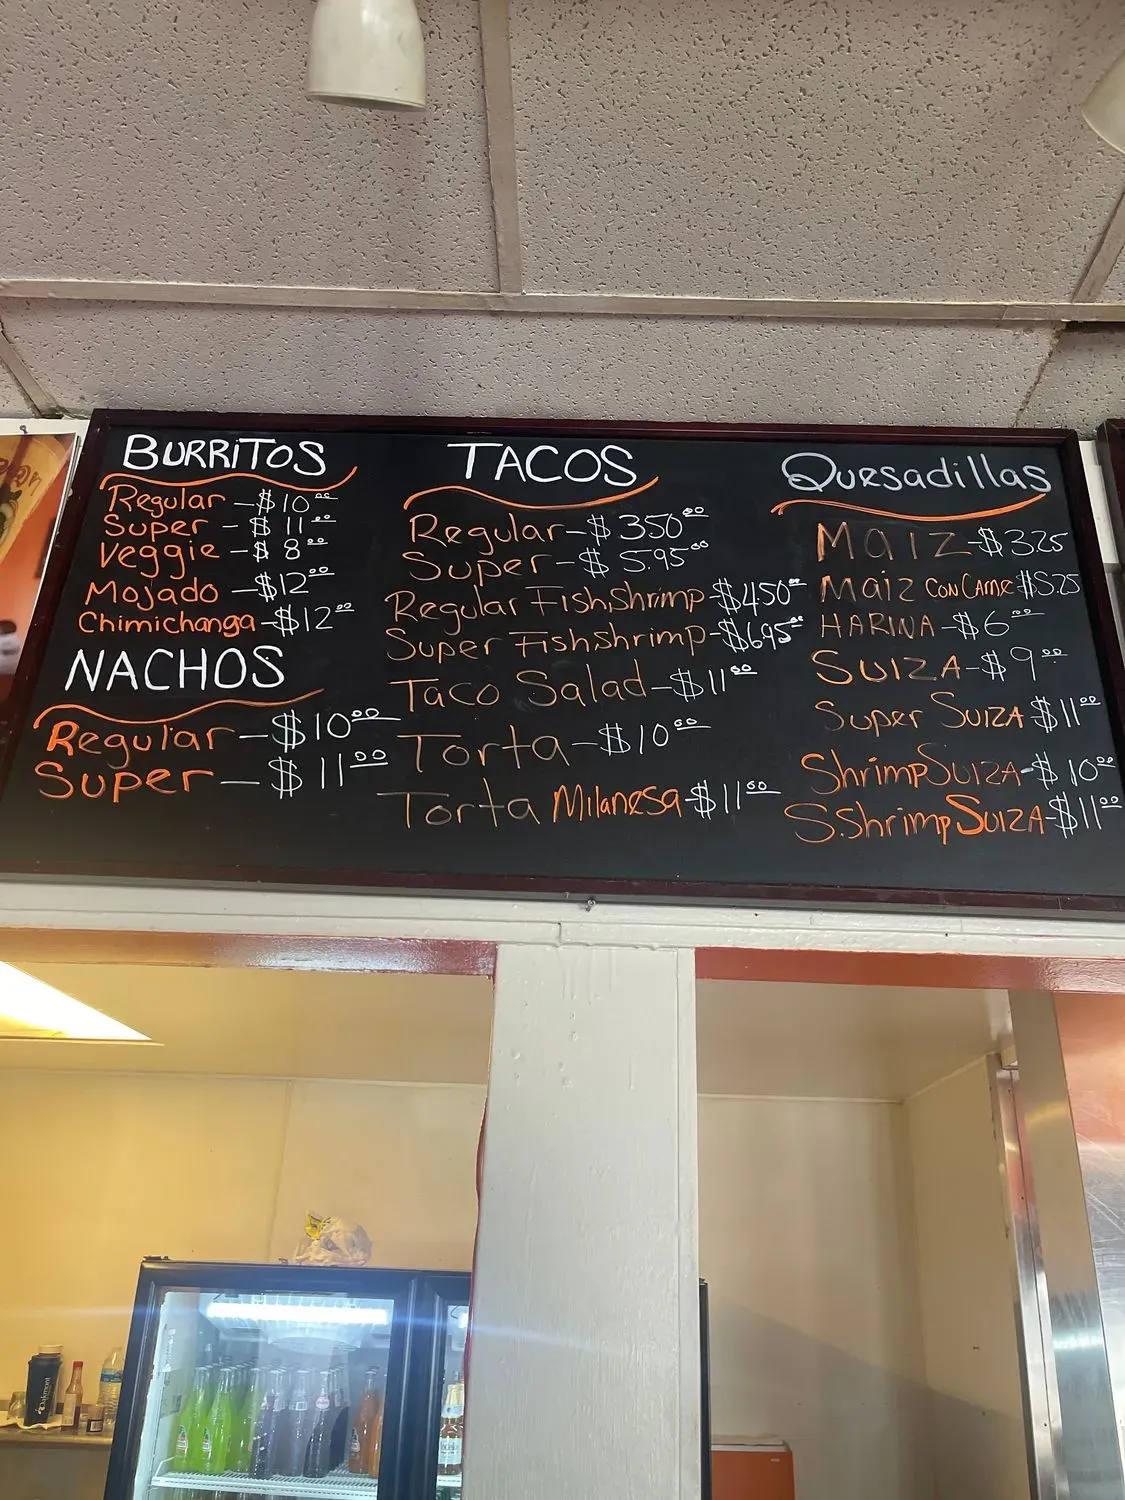 BURRITOS
Regular - $10.00
Super - $11.00
Veggie - $8.00
Mojado - $12.00
Chimichanga - $12.00
NACHOS
Regular - $10.00
Super - $11.00
TACOS
Regular - $350.00
Super - $5.95.00
Regular Fish,Shrimp - $450.00
Super Fish,Shrimp - $6.95.00
Taco Salad - $11.00
Torta - $10.00
Torta Milanesa - $11.00
Quesadillas
Maiz - $325
Maiz con Carne $5.25
HARINA - $6.00
SUIZA - $9.00
Super SUIZA $11.00
Shrimp SUIZA - $10.00
S.Shrimp SUIZA - $11.00
Oakmont